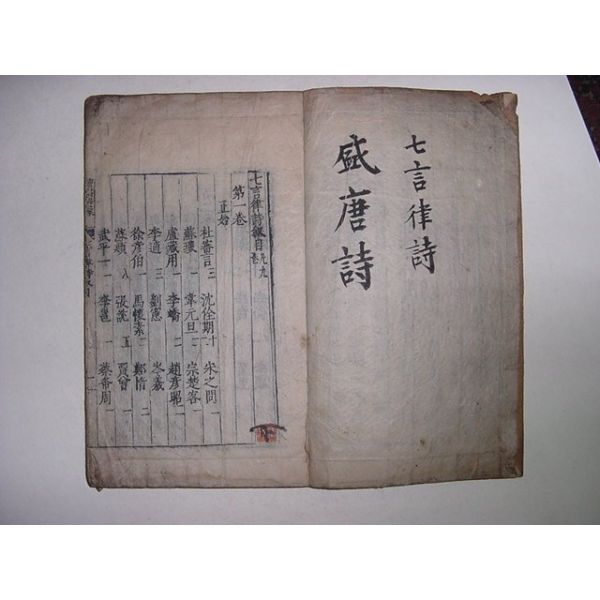 七言律詩
盛唐詩
七言律詩目 凡九卷
第一卷
正始
杜審言 三 沈佺期 十二 宋之問 一
蘇瓌 一 韋元旦 二 宗楚客 一
盧藏用 一 李嶠 二 趙彥昭 一
李適 三 劉憲 岑羲 一
徐彥伯 一 馬懷素 二 鄭愔 二
蘇頲 八 張說 五 賈曾 一
武平一 一 李邕 一 蔡希周 一